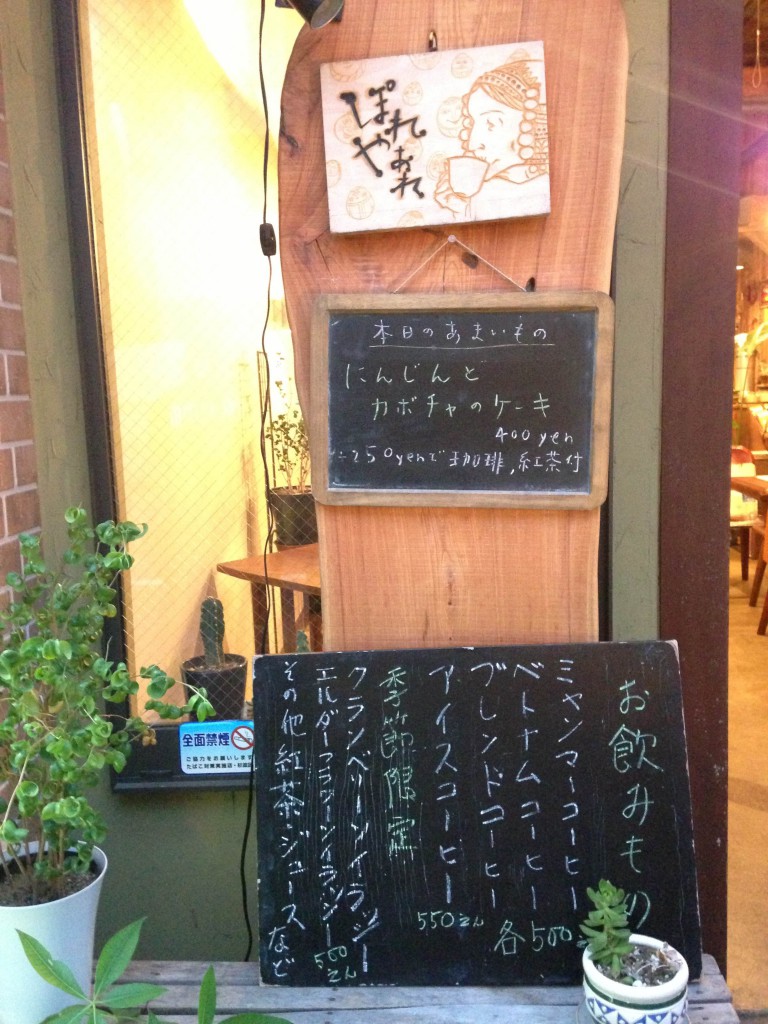 ぽれ
やぁれ
本日のあまいもの
にんじんと
カボチャのケーキ
400yen
250yenで珈琲,紅茶付
お飲みもの
ミャンマーコーヒー
ベトナムコーヒー
ブレンドコーヒー
各500
アイスコーヒー
550えん
季節限定
クランベリーソイラッシー
エルダーフラワーソイラッシー
500えん
その他紅茶・ジュースなど
全面禁煙
ご協力をお願いします